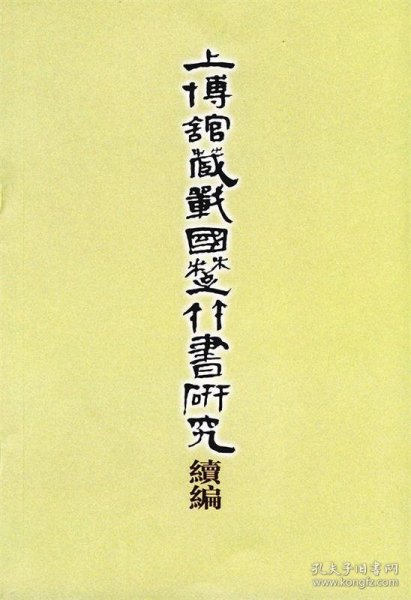 上博館藏戰國楚竹書研究
續編
孔夫子旧书网
www.kongfz.com